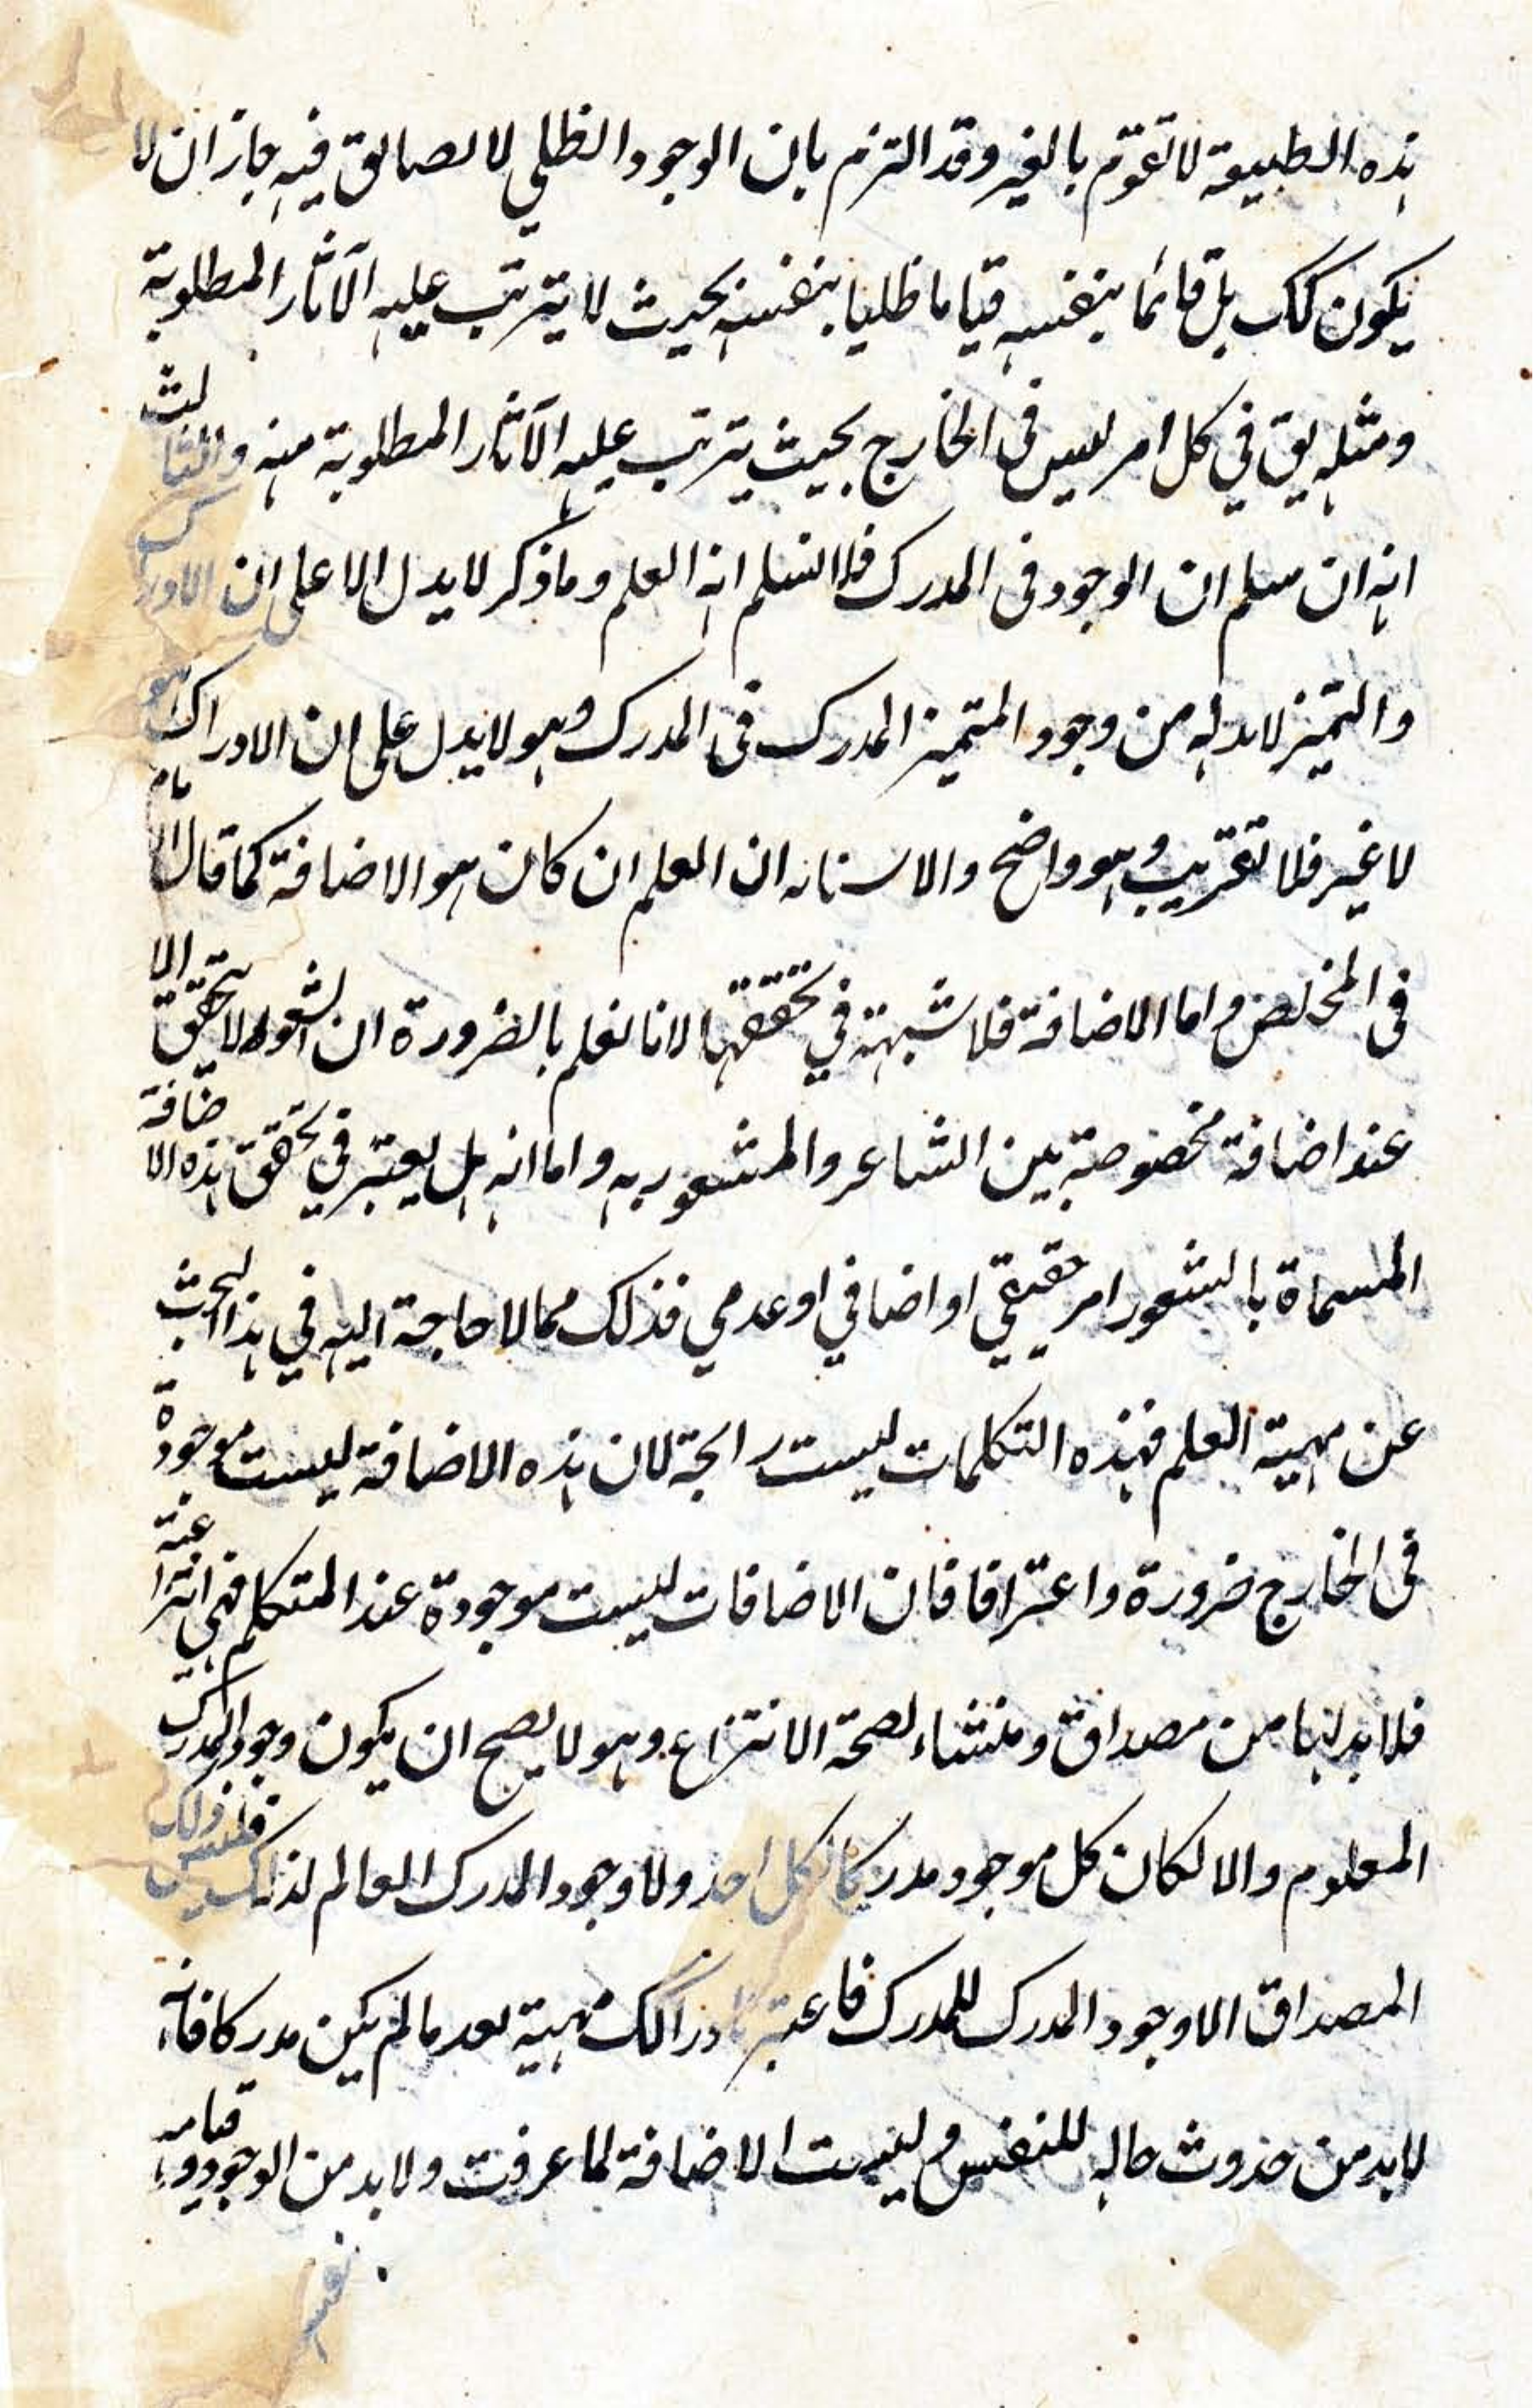 هذه الطبيعة لا تقوم بالغير وقد التزم بان الوجود الظلي لا لصالوق فيه جاز ان لا
يكون كك بل قائما بنفسه قياما ظليا بنفسه بحيث لا يترتب عليه الآثار المطلوبة
ومثله يق في كل امر ليس في الخارج بحيث يترتب عليه الآثار المطلوبة منه والثالث
انه ان سلم ان الوجود في المدرك فلا نسلم انه العلم وما ذكر لا يدل الا على ان الادراك
والتميز لا بد له من وجود المتميز المدرك في المدرك وهو لا يدل على ان الادراك هو
لا غير فلا تقريب وهو واضح والا ستانه ان العلم ان كان هو الاضافة كما قال الامام
في الملخص واما الاضافة فلا شبهة في تحققها لانا نعلم بالضرورة ان الشعور لا يتحقق الا
عند اضافة مخصوصة بين الشاعر والمشعور به واما انه هل يعتبر في تحقق هذه الاضافة
المسماة بالشعور امر حقيقي او اضافي او عدمي فذلك مما لا حاجة اليه في هذا البحث
عن مهية العلم فهذه التكلمات ليست رابحة لان هذه الاضافة ليست موجودة
في الخارج ضرورة واعترافا فان الاضافات ليست موجودة عند المتكلم فهي انتزاعية
فلا بد لها من مصداق ومنشاء لصحة الانتزاع وهو لا يصح ان يكون وجود المدرك
المعلوم والا لكان كل موجود مدركا لكل احد ولا وجود المدرك العالم لذلك فليس
المصداق الا وجود المدرك للمدرك فاعتبر بادراكك مهية بعد ما لم يكن مدركا فانه
لا بد من حدوث حاله للنفس وليست الاضافة لما عرفت ولا بد من الوجود وقيامه